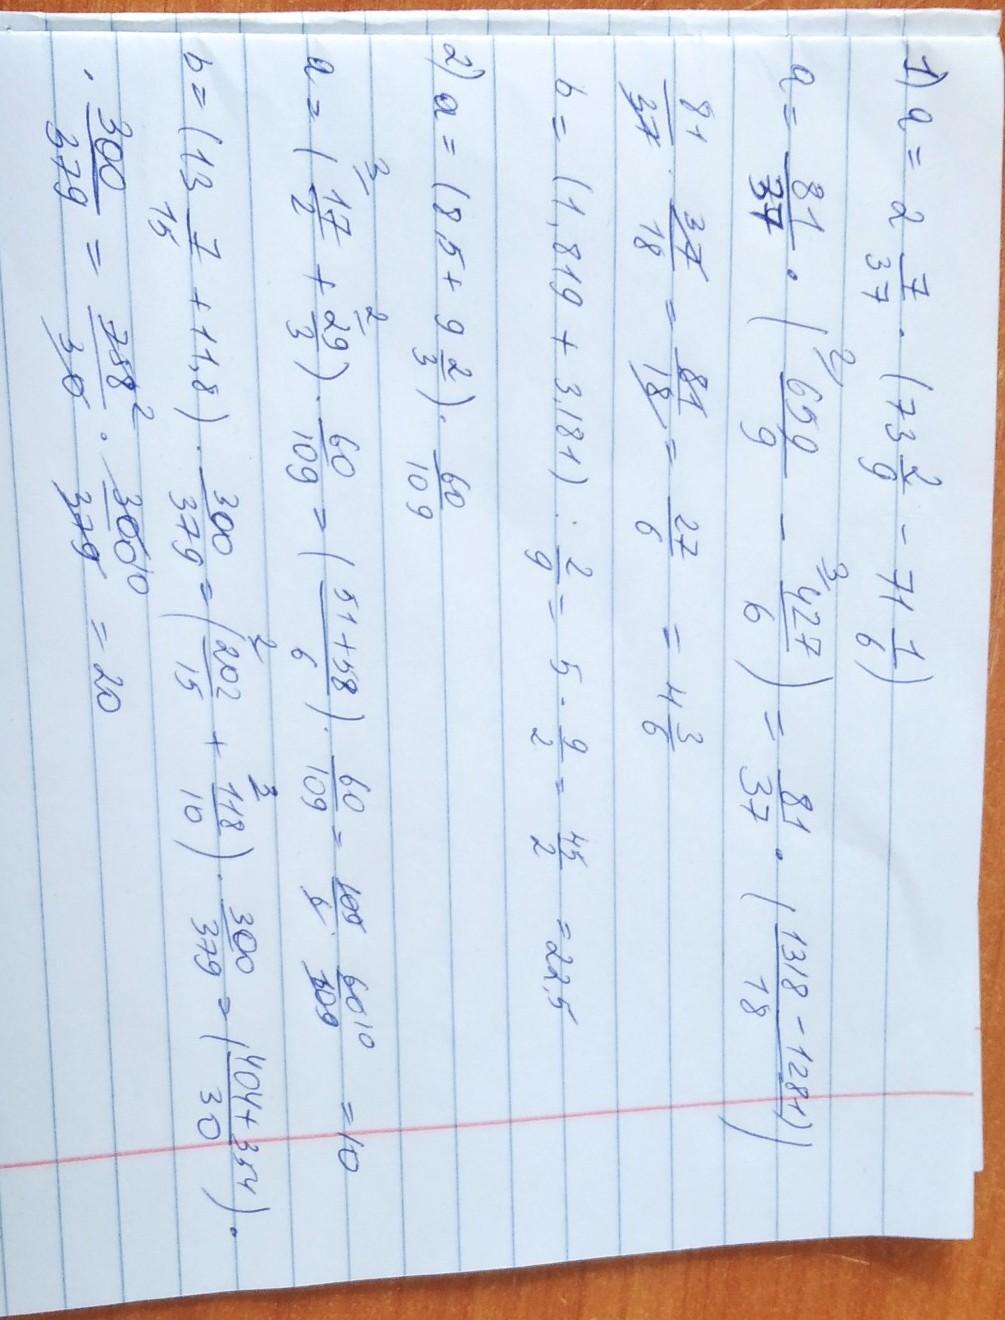 1) a = 2 7/37 · (73 2/9 - 71 1/6)
a = 81/37 · (2/ 659/9 - 3/ 427/6) = 81/37 · (1318 - 1281)/18)
81/37 · 37/18 = 81/18 = 27/6 = 4 3/6
b = (1,819 + 3,181) : 2/9 = 5 · 9/2 = 45/2 = 22,5
2) a = (8,5 + 9 2/3) · 60/109
a = (3/ 17/2 + 2/ 29/3) · 60/109 = (51+58/6) · 60/109 = 109/6 · 60 10/109 = 10
b = (13 7/15 + 11,8) · 300/379 = (2/ 202/15 + 3/ 118/10) · 300/379 = (404+354/30) ·
· 300/379 = 758 2/30 · 300 10/379 = 20